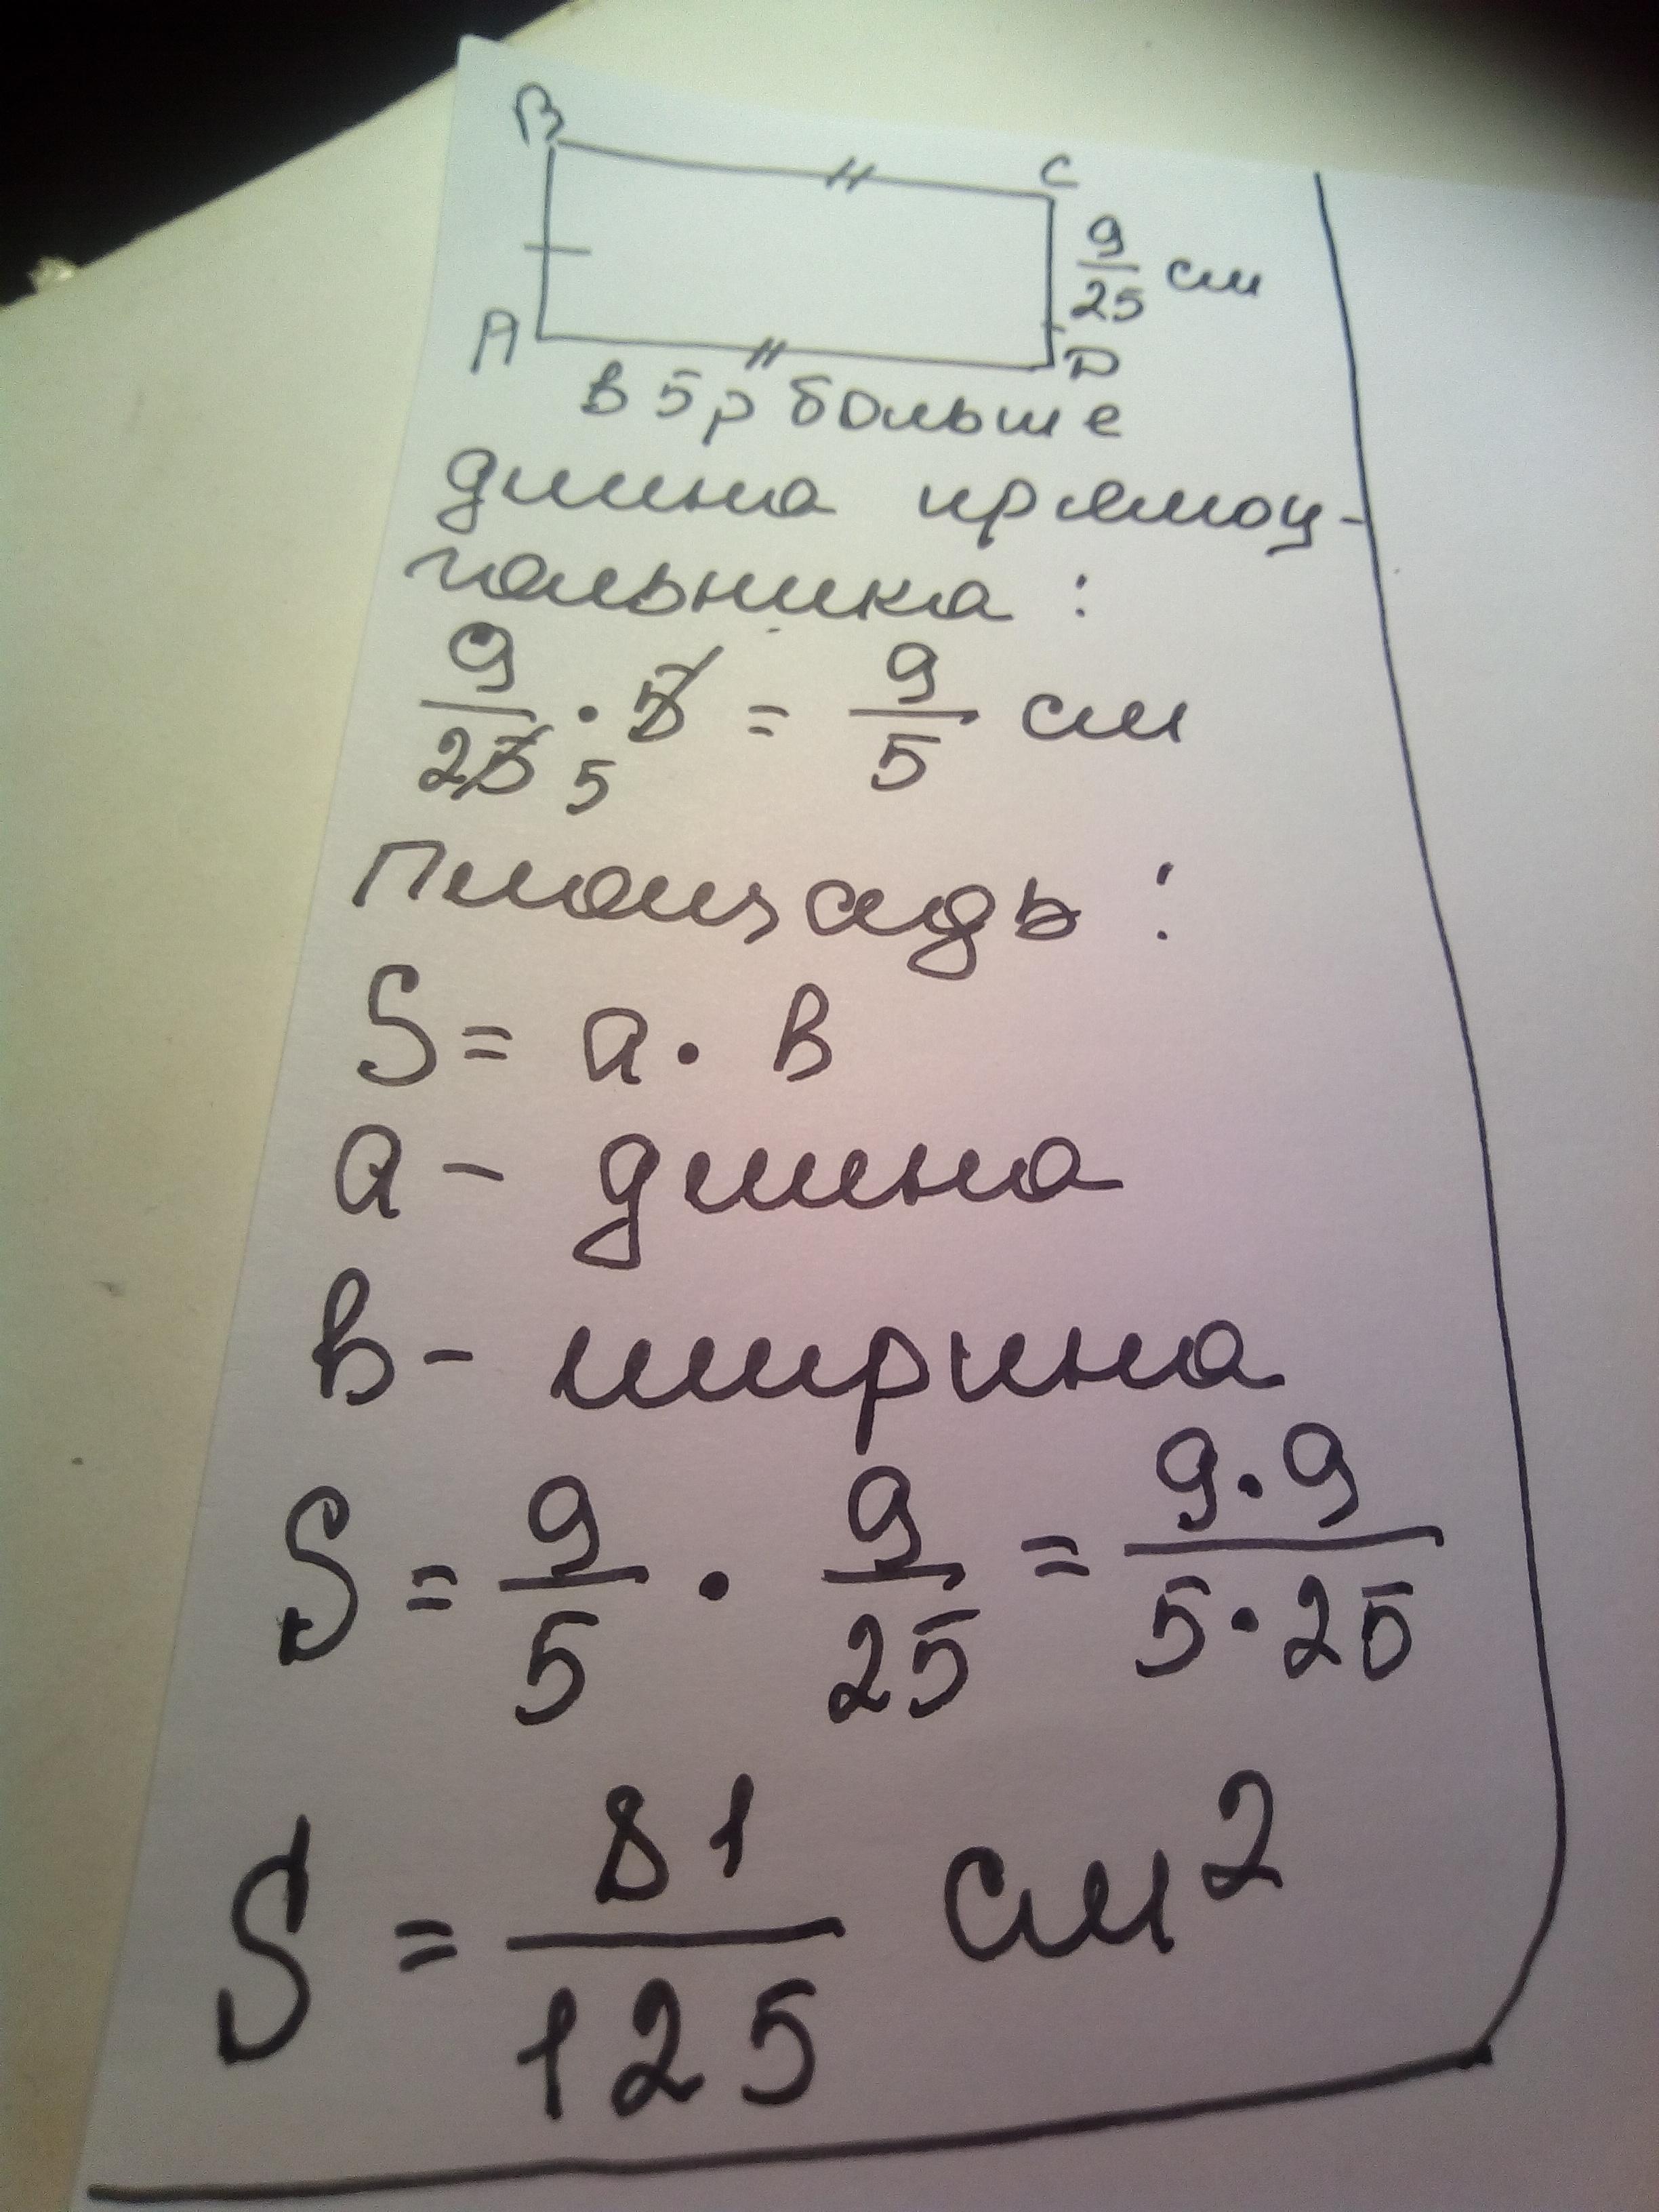 B C
9/25 см
A D
в 5 р больше
длина прямоу-
гольника:
9/25 5 · 5 = 9/5 см
Площадь:
S = a · в
a - длина
в - ширина
S = 9/5 · 9/25 = 9·9/5·25
S = 81/125 см²